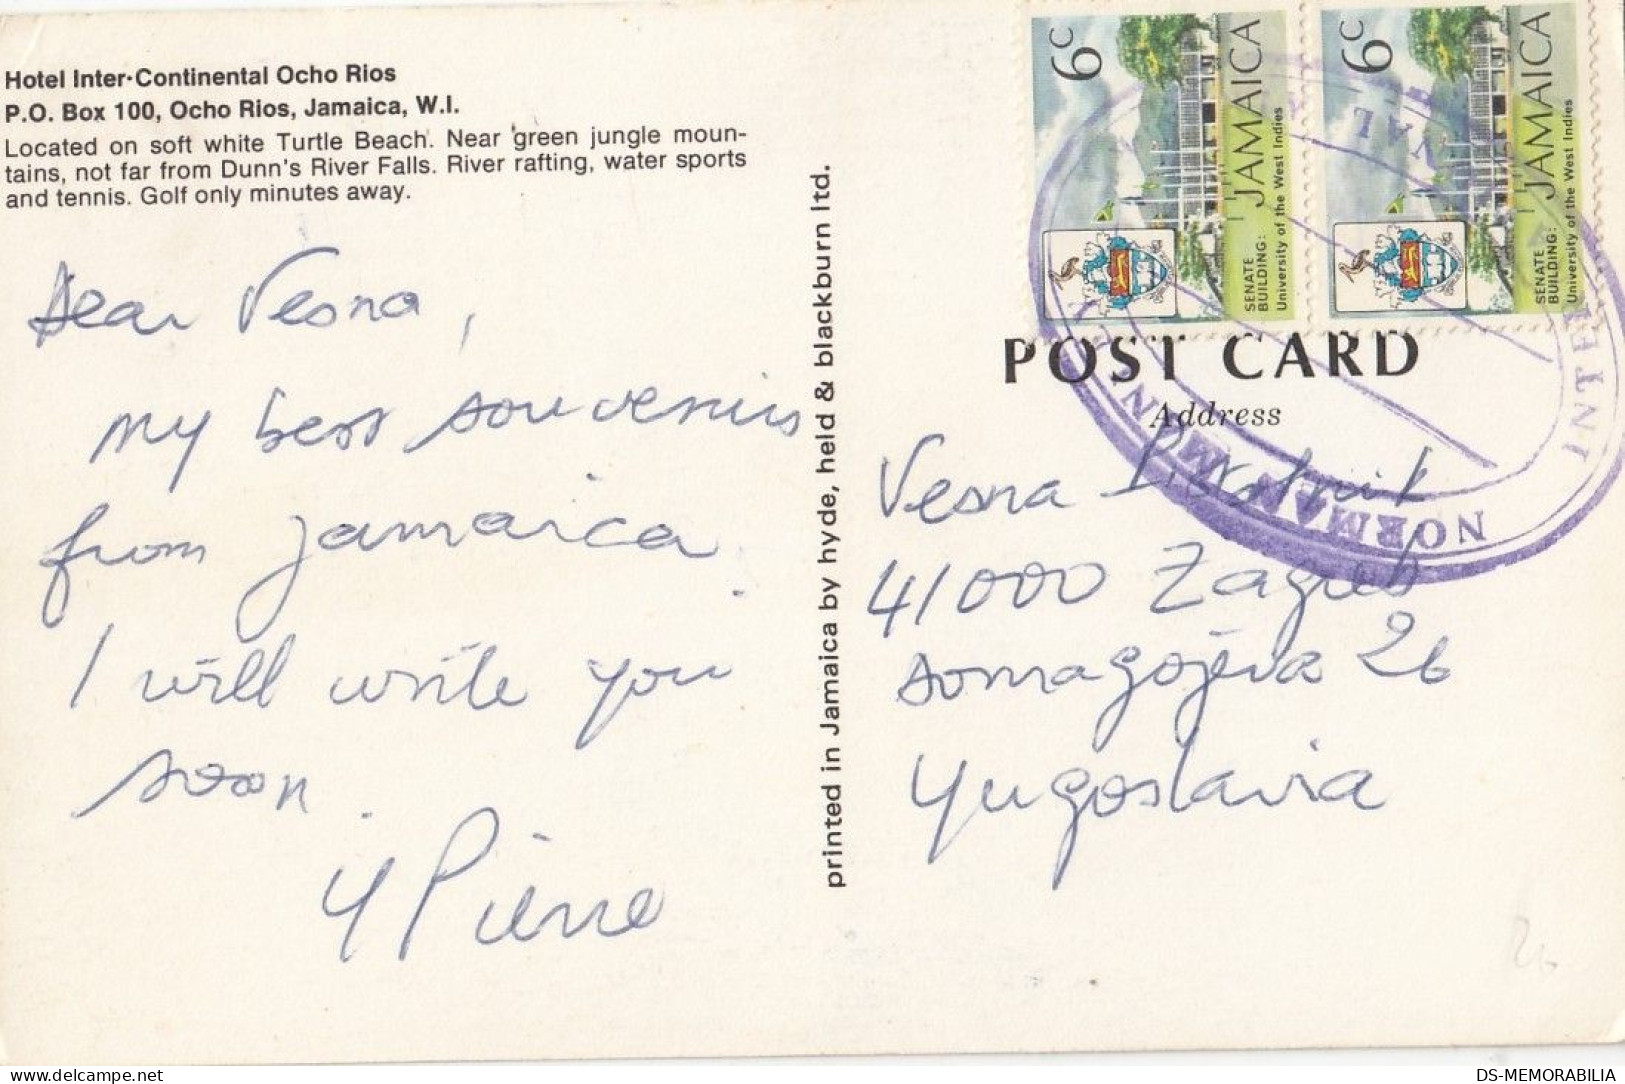 Hotel Inter-Continental Ocho Rios
P.O. Box 100, Ocho Rios, Jamaica, W.I.
Located on soft white Turtle Beach. Near green jungle moun-
tains, not far from Dunn's River Falls. River rafting, water sports
and tennis. Golf only minutes away.
Dear Vesna,
my best souvenirs
from Jamaica.
I will write you
soon.
Y Pierre
printed in Jamaica by hyde, held & blackburn ltd.
6c
JAMAICA
SENATE
BUILDING:
University of the West Indies
6c
JAMAICA
SENATE
BUILDING:
University of the West Indies
NORMAN MAN
INTER
NAL
POST CARD
Address
Vesna
41000 Zagreb
Domagojeva 26
Yugoslavia
DS-MEMORABILIA
delcampe.net